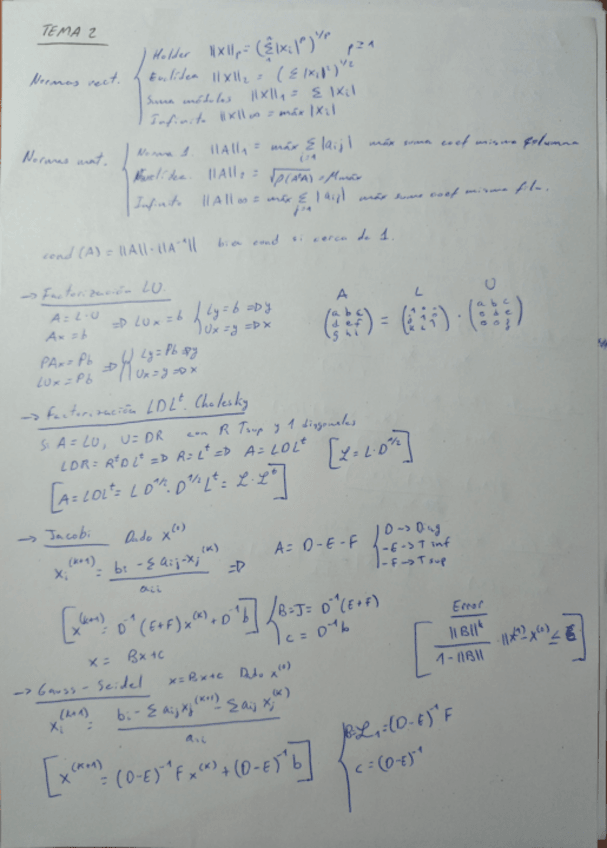 TEMA 2
Normas vect. { Holder ||x||p = (Σ|xi|^p)^1/p p≥1
Euclídea ||x||2 = (Σ|xi|²)^1/2
Suma módulos ||x||1 = Σ|xi|
Infinito ||x||∞ = máx|xi|
Normas mat. { Norma 1. ||A||1 = máx Σ|aij| máx suma coef misma columna
Euclídea. ||A||2 = √ρ(A*A)
Infinito ||A||∞ = máx Σ|aij| máx suma coef misma fila.
cond(A) = ||A||·||A⁻¹|| bien cond si cerca de 1.
→ Factorización LU.
A = L·U
Ax = b ⇒ LUx = b { Ly = b ⇒ y
Ux = y ⇒ x
A L U
(a b c
d e f
g h i) = ( ) · (a b c
0 d e
0 0 f)
PAx = Pb
LUx = Pb ⇒ { Ly = Pb ⇒ y
Ux = y ⇒ x
→ Factorización LDLᵗ. Cholesky
Si A = LU, U = DR con R Tsup y 1 diagonales
LDR = RᵗDLᵗ ⇒ R = Lᵗ ⇒ A = LDLᵗ [ℒ = L·D^1/2]
[A = LDLᵗ = LD^1/2·D^1/2Lᵗ = ℒ·ℒᵗ]
→ Jacobi Dado x⁽⁰⁾
xi^(k+1) = (bi - Σaij·xj^(k)) / aii ⇒ A = D-E-F { D → Diag
-E → T inf
-F → T sup
[x^(k+1) = D⁻¹(E+F)x^(k) + D⁻¹b] { B = J = D⁻¹(E+F)
c = D⁻¹b
x = Bx+c
Error
[||B||^k / (1-||B||) · ||x⁽¹⁾-x⁽⁰⁾|| ≤ ε]
→ Gauss-Seidel x = Bx+c Dado x⁽⁰⁾
xi^(k+1) = (bi - Σaij xj^(k+1) - Σaij xj^(k)) / aii
[x^(k+1) = (D-E)⁻¹F x^(k) + (D-E)⁻¹b] { B = ℒ1 = (D-E)⁻¹F
c = (D-E)⁻¹